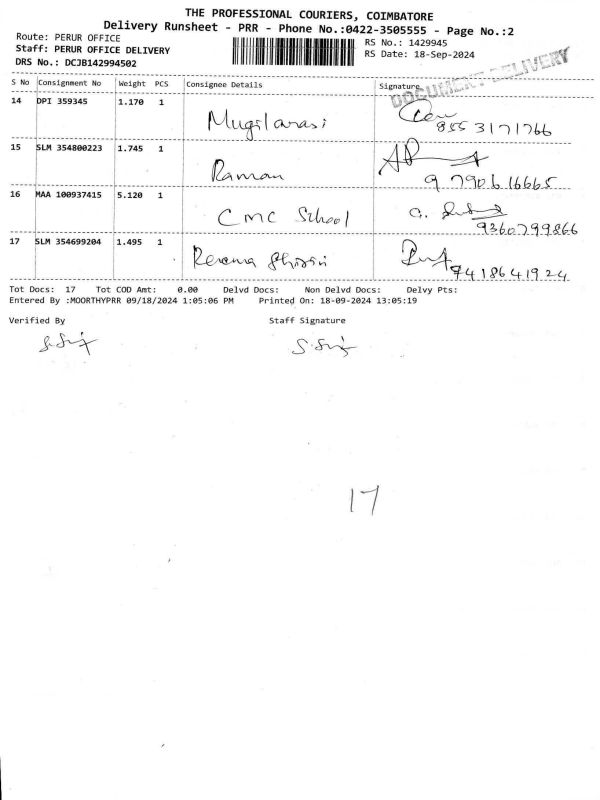 THE PROFESSIONAL COURIERS, COIMBATORE
Delivery Runsheet - PRR - Phone No.:0422-3505555 - Page No.:2
Route: PERUR OFFICE
RS No.: 1429945
Staff: PERUR OFFICE DELIVERY
RS Date: 18-Sep-2024
DRS No.: DCJB142994502
DOCUMENT DELIVERY
S No Consignment No Weight PCS Consignee Details Signature
14 DPI 359345 1.170 1 Mugilarasi
8553171766
15 SLM 354800223 1.745 1 Raman
9 7906 16665
16 MAA 100937415 5.120 1 CMC School
9360799866
17 SLM 354699204 1.495 1
7418641924
Tot Docs: 17 Tot COD Amt: 0.00 Delvd Docs: Non Delvd Docs: Delvy Pts:
Entered By :MOORTHYPRR 09/18/2024 1:05:06 PM Printed On: 18-09-2024 13:05:19
Verified By Staff Signature
17